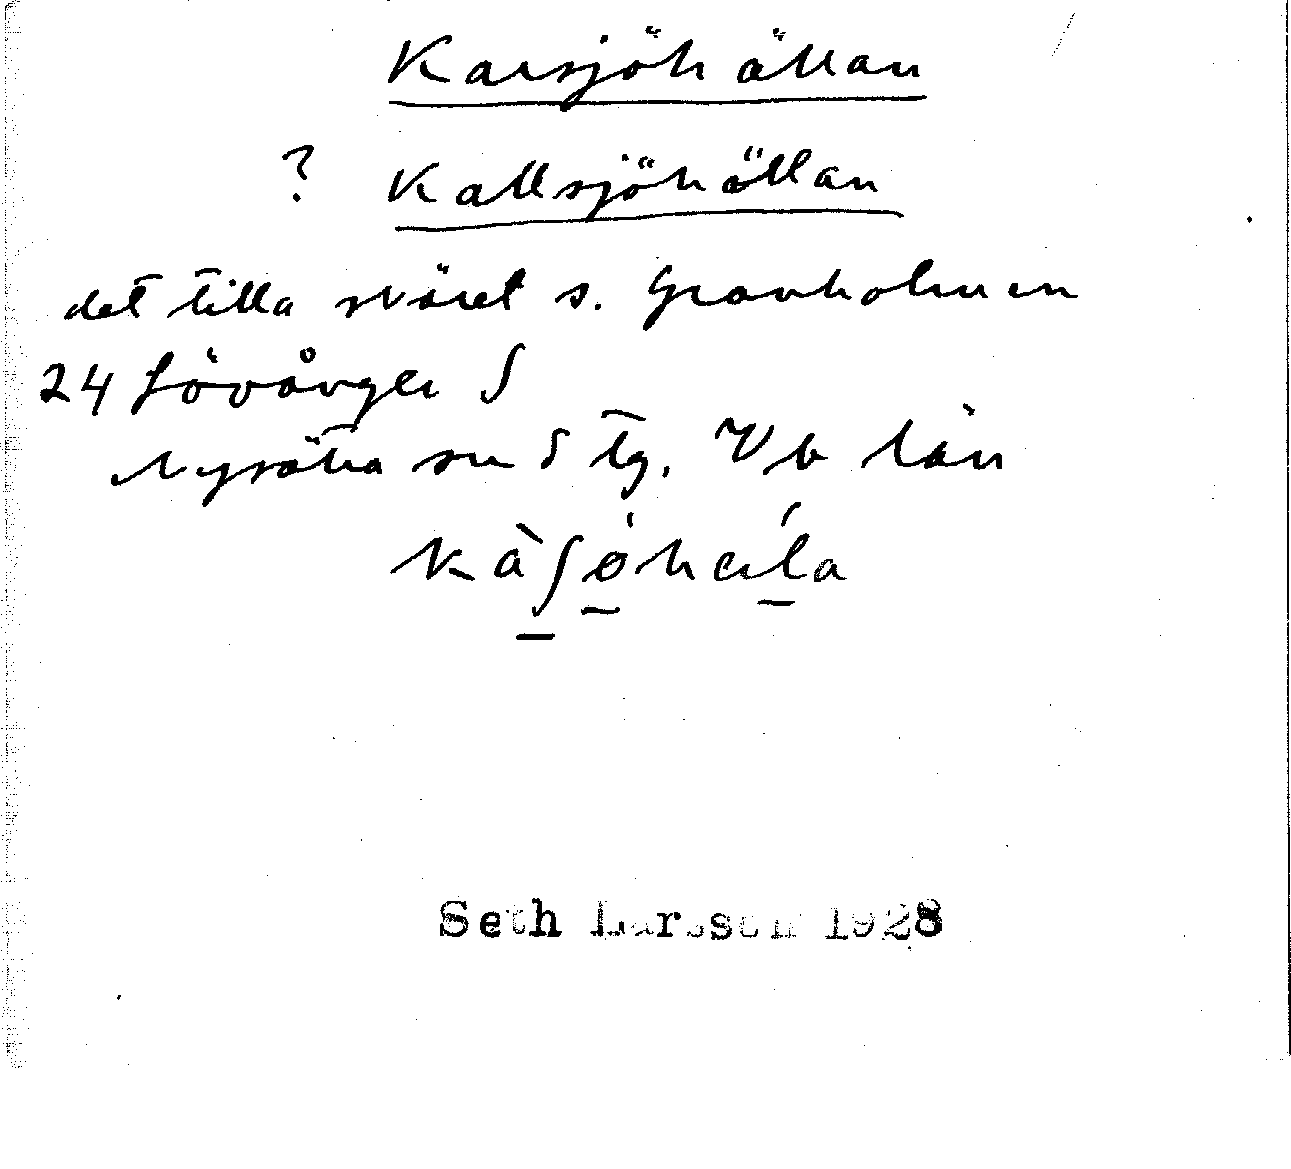 Karsjöhällan
? Kallsjöhällan
det lilla skäret s. Granholmen
24 Lövånger S
Nysätra sn S tg. Vb län
kàʃøhæĺa
Seth Larsson 1928